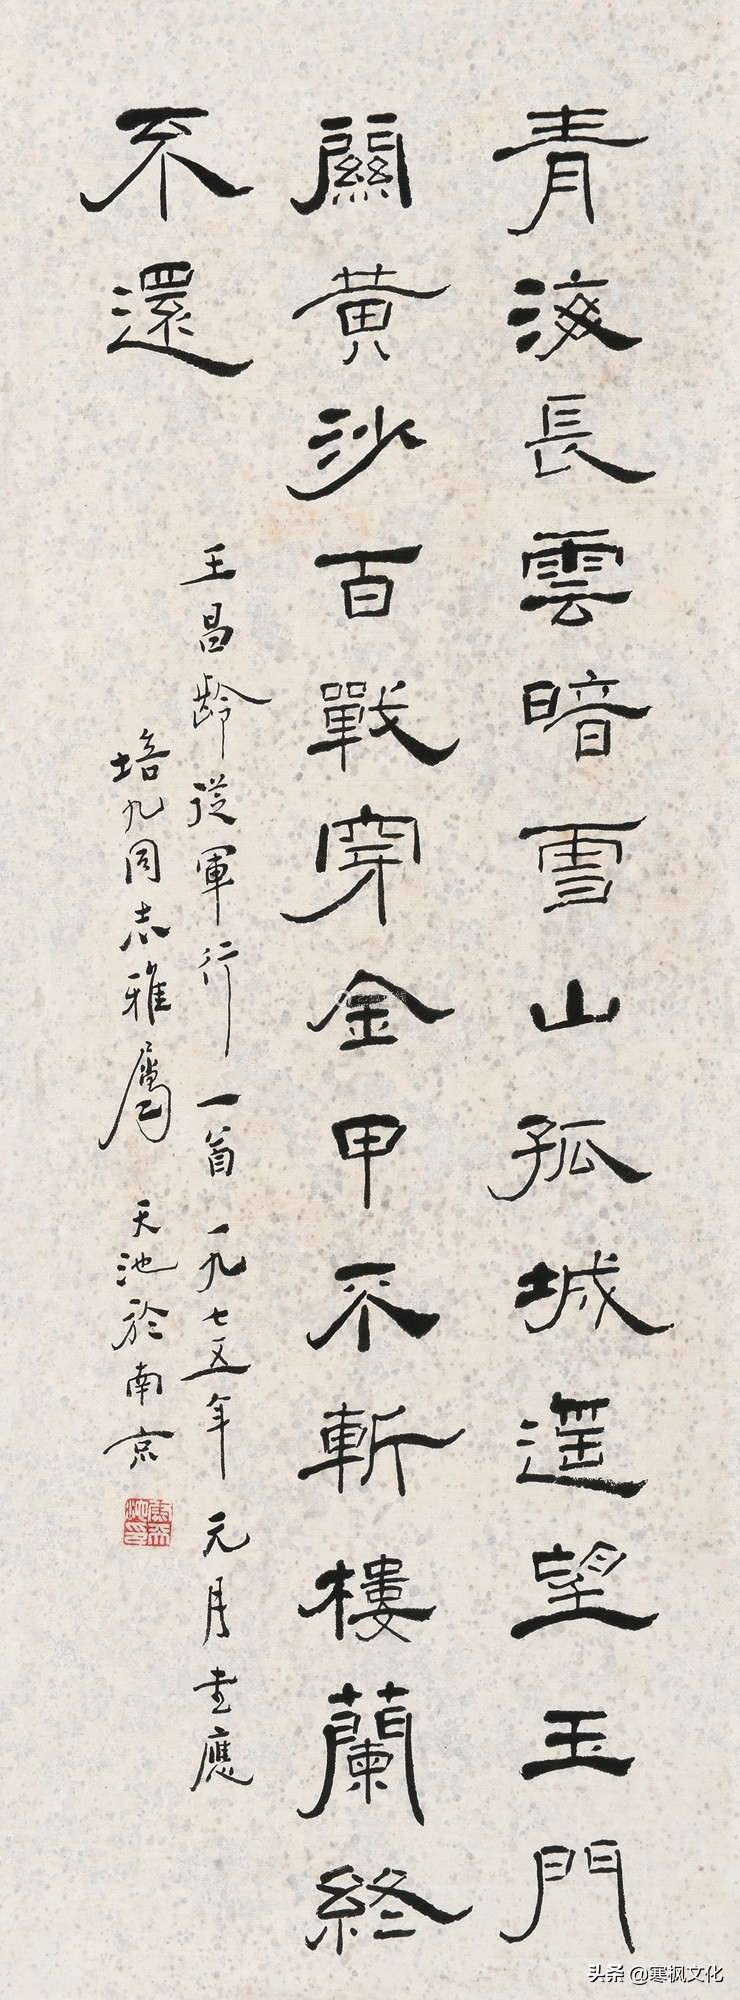 青海長雲暗雪山孤城遥望玉門
關黄沙百戰穿金甲不斬樓蘭終
不還
王昌齡從軍行一首 一九七五年元月書應
培九同志雅屬 天池於南京
尉天池印
头条 @寒枫文化